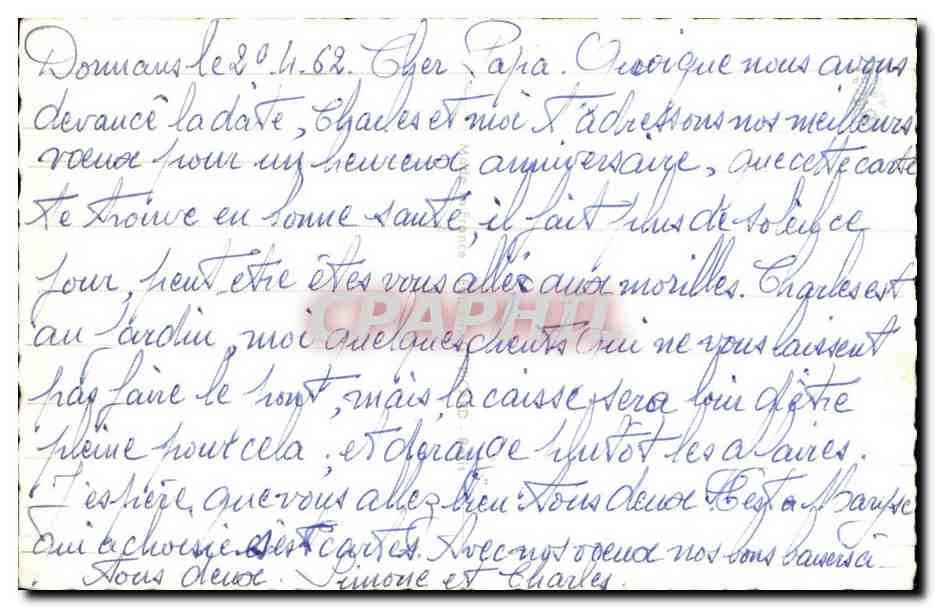 Dormans le 29.4.62. Cher Papa. Quoique nous avons
devancé la date, Charles et moi t'adressons nos meilleurs
vœux pour un heureux anniversaire, que cette carte
te trouve en bonne santé, il fait plus de soleil ce
jour, peut être êtes vous allés aux morilles. Charles est
au Jardin, moi quelques clients qui ne vous laissent
pas faire le pont, mais la caisse sera loin d'être
pleine pour cela, et dérange plutôt les affaires.
J'espère que vous allez bien tous deux. C'est Maryse
qui a choisie cartes. Avec nos vœux nos bons baisers à
tous deux. Simone et Charles.
CPAPHIL